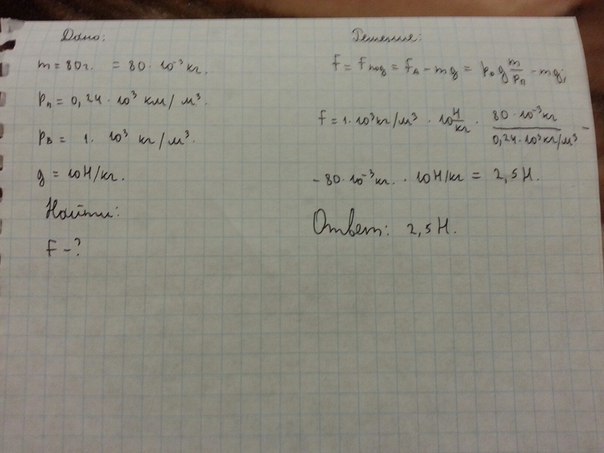 Дано:
m = 80г. = 80 · 10⁻³ кг.
ρп = 0,24 · 10³ км/м³.
ρв = 1 · 10³ кг/м³.
g = 10 Н/кг.
Найти:
F - ?
Решение:
F = Fпод = FA - mg = ρв g m/ρп - mg;
F = 1 · 10³ кг/м³ · 10 Н/кг · 80 · 10⁻³ кг / 0,24 · 10³ кг/м³ -
- 80 · 10⁻³ кг. · 10 Н/кг = 2,5 Н.
Ответ: 2,5 Н.